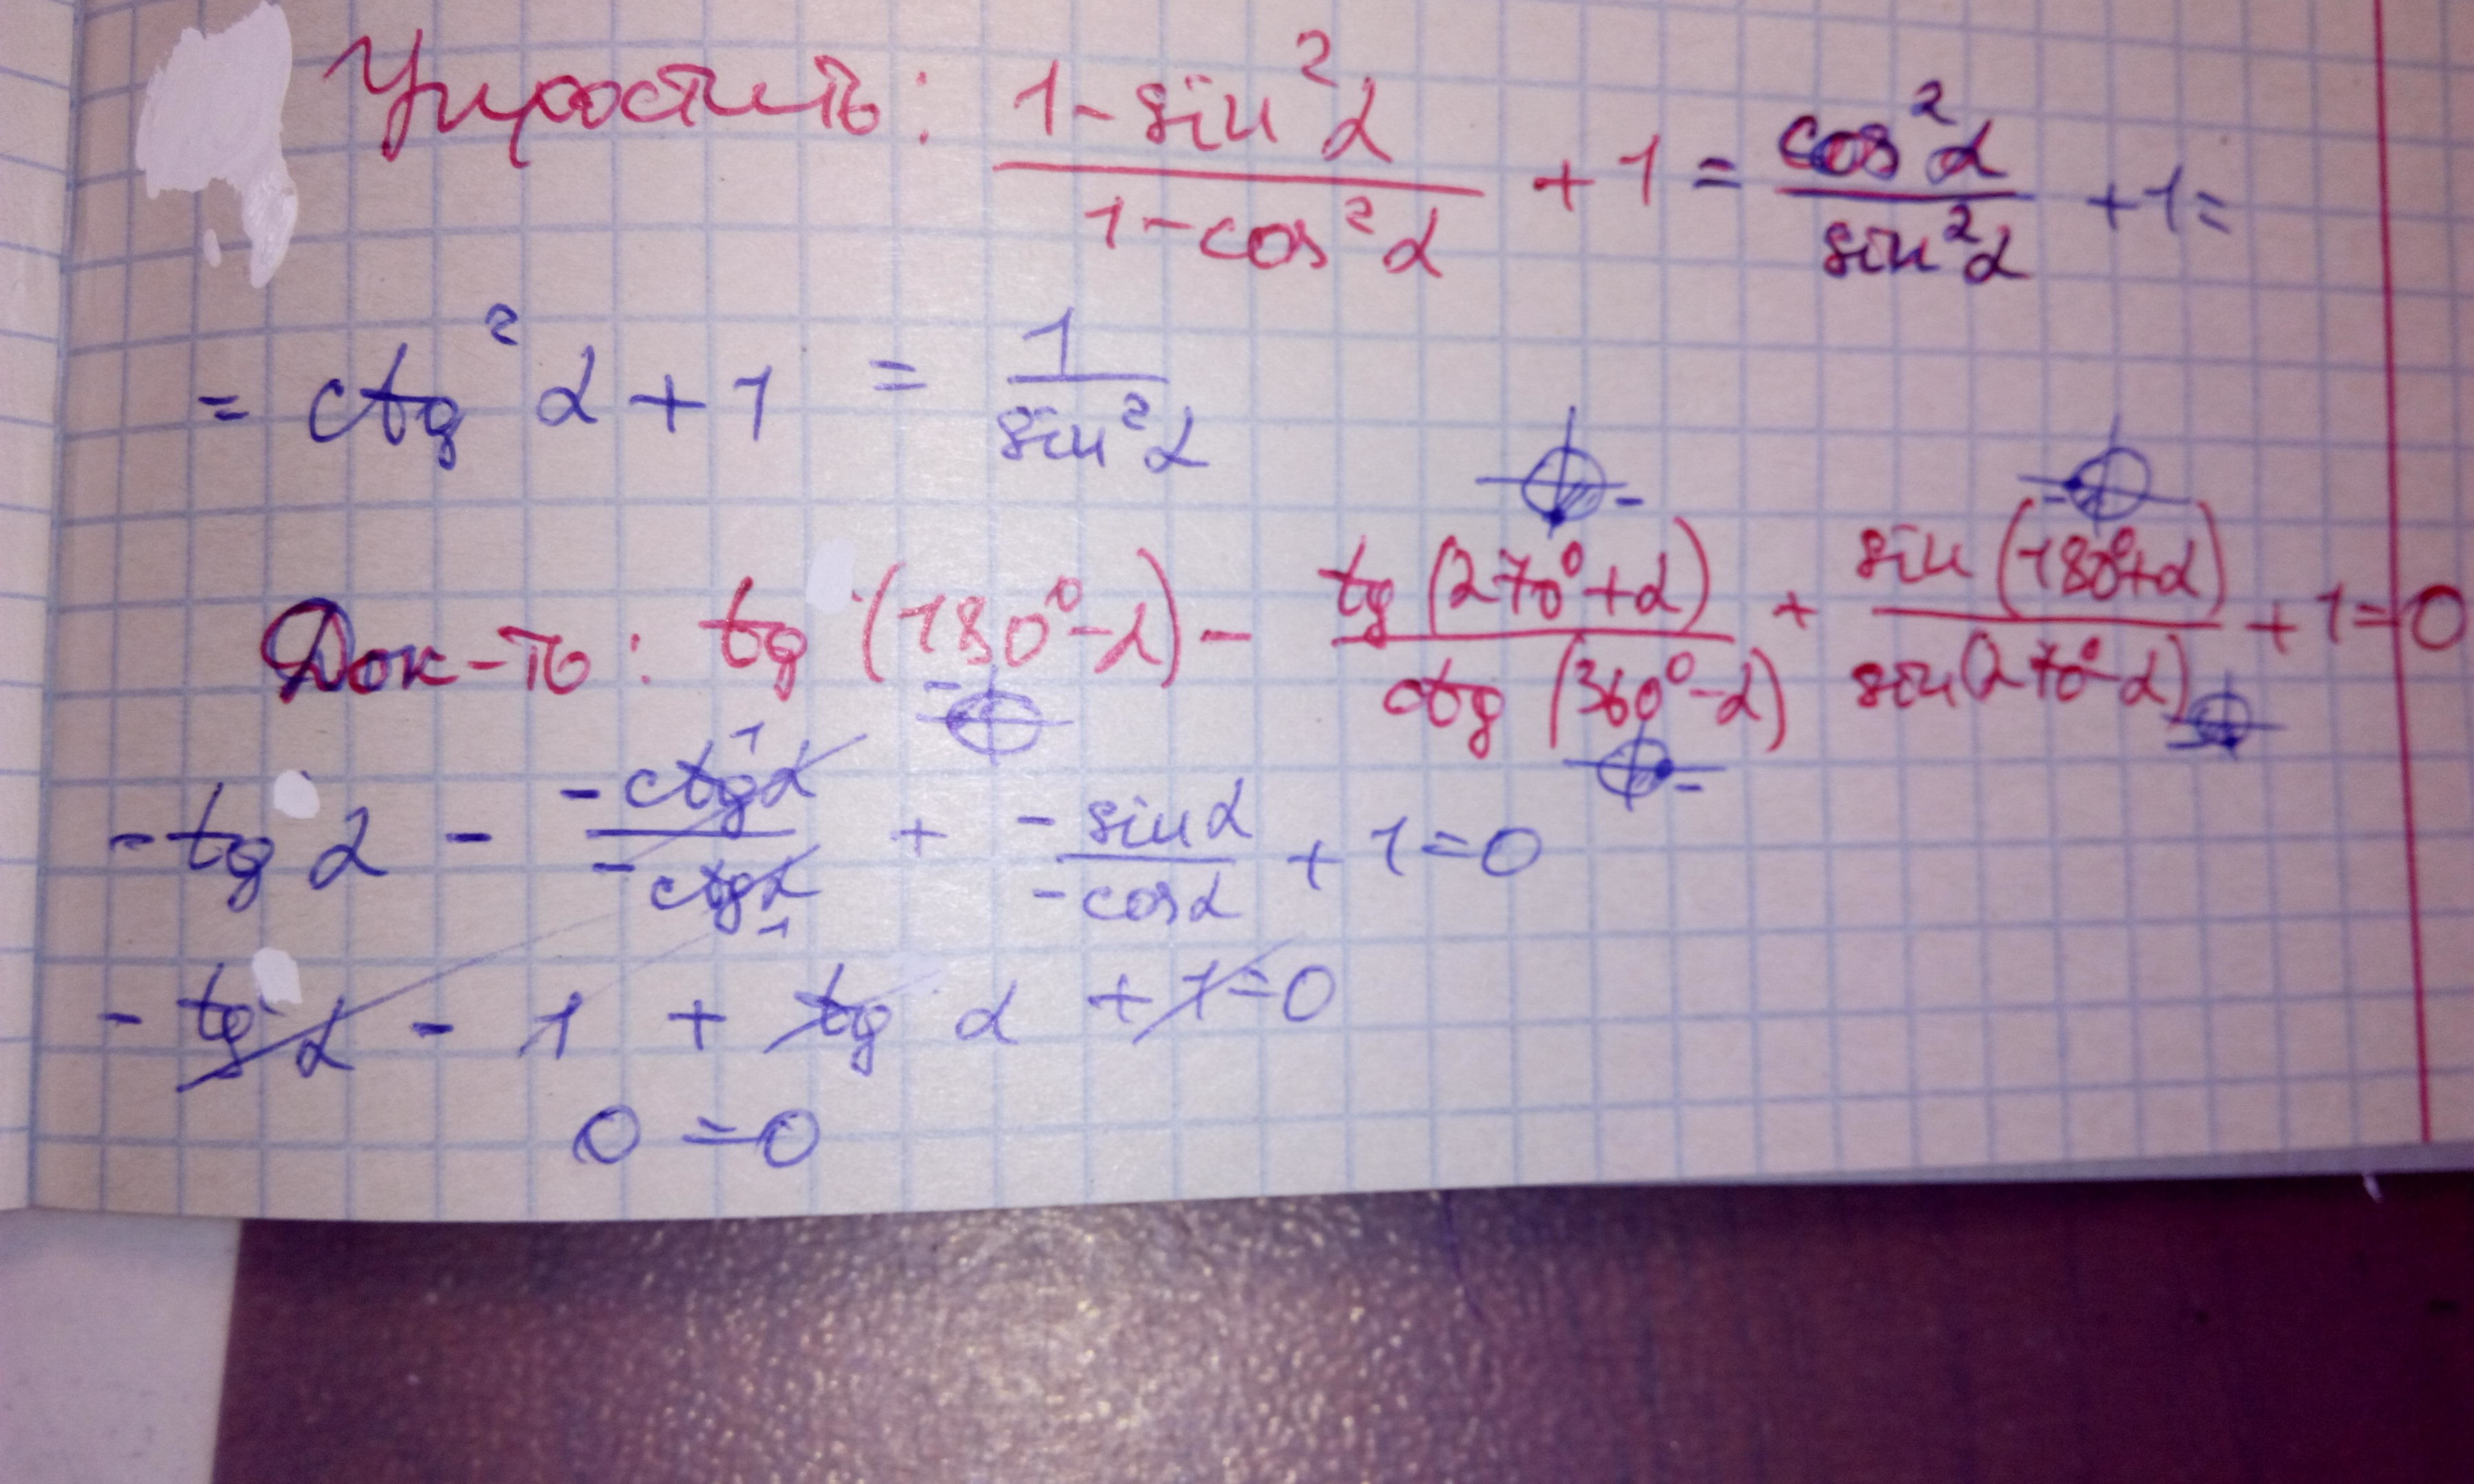 Упростить: (1-sin²α)/(1-cos²α) + 1 = cos²α/sin²α + 1 =
= ctg²α + 1 = 1/sin²α
Док-ть: tg (180°-α) - tg (270°+α)/ctg (360°-α) + sin (180°+α)/sin(270°-α) + 1 = 0
-tg α - (-ctgα)/(-ctgα) + (-sinα)/(-cosα) + 1 = 0
- tg α - 1 + tg α + 1 = 0
0 = 0